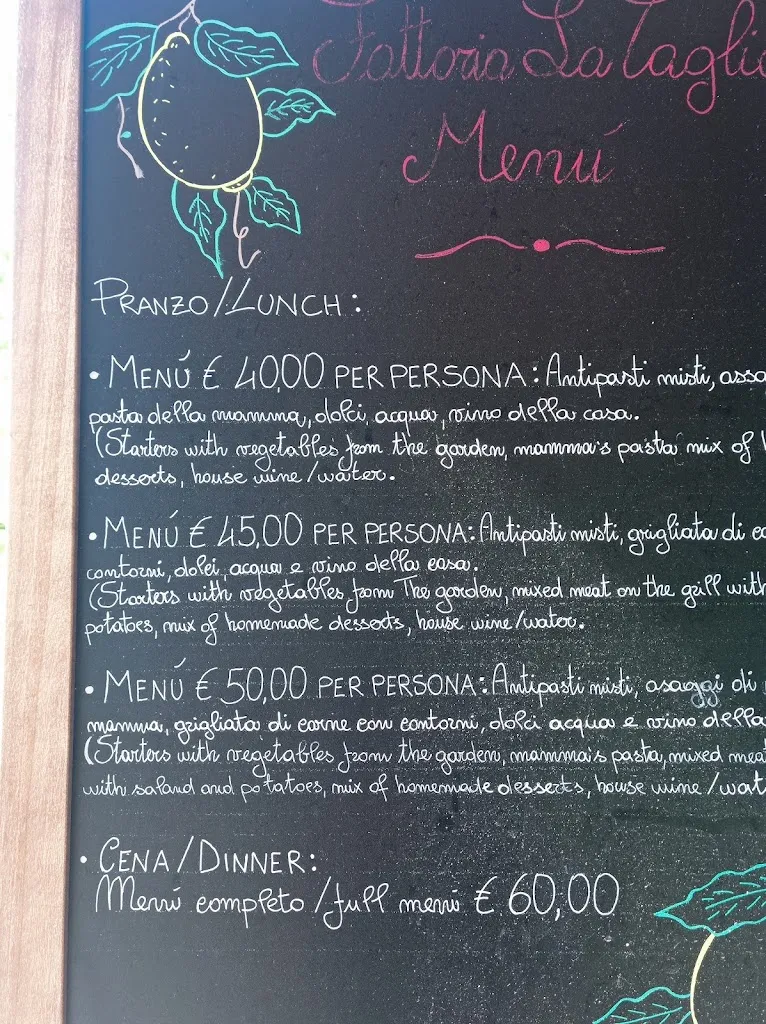 Fattoria La Taglia
Menú
PRANZO/LUNCH:
• MENÚ € 40,00 PER PERSONA: Antipasti misti, assa
pasta della mamma, dolci, acqua, vino della casa.
(Starters with vegetables from the garden, mamma's pasta mix of
desserts, house wine/water.
• MENÚ € 45,00 PER PERSONA: Antipasti misti, grigliata di ca
contorni, dolci, acqua e vino della casa.
(Starters with vegetables from The garden, mixed meat on the grill with
potatoes, mix of homemade desserts, house wine/water.
• MENÚ € 50,00 PER PERSONA: Antipasti misti, asaggi di
mamma, grigliata di carne con contorni, dolci acqua e vino della
(Starters with vegetables from the garden, mamma's pasta, mixed meat
with saland and potatoes, mix of homemade desserts, house wine/wat
• CENA/DINNER:
Menú completo/full menú € 60,00